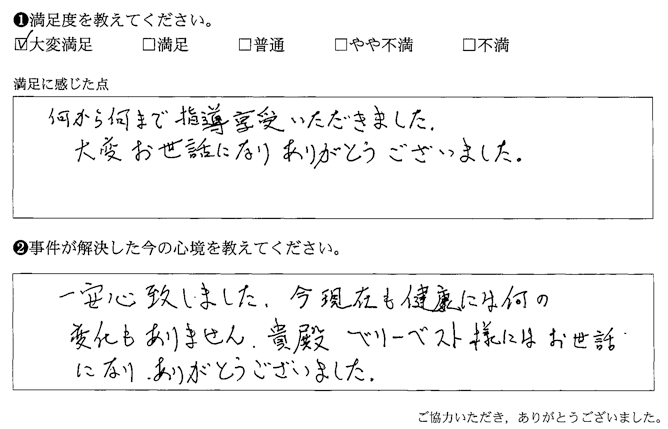 ❶満足度を教えてください。
☑大変満足 □満足 □普通 □やや不満 □不満
満足に感じた点
何から何まで指導享受いただきました.
大変お世話になりありがとうございました。
❷事件が解決した今の心境を教えてください。
一安心致しました. 今現在も健康には何の
変化もありません. 貴殿 ベリーベスト様にはお世話
になり.ありがとうございました.
ご協力いただき，ありがとうございました。